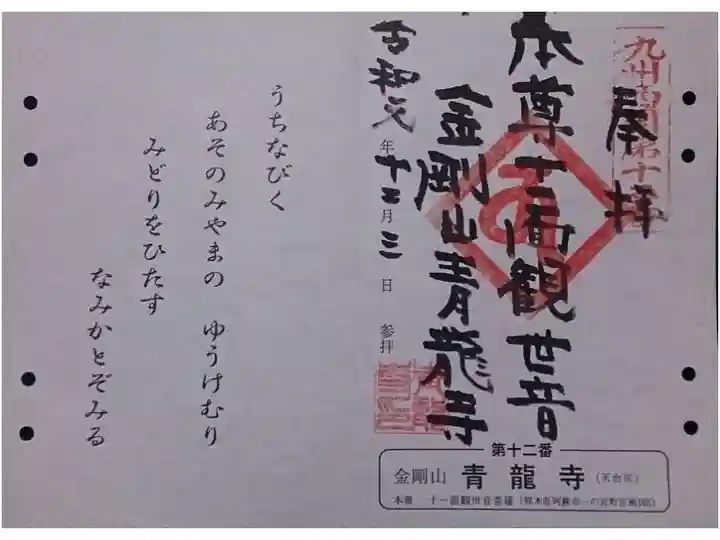 奉拝
本尊十一面観世音
金剛山青龍寺
令和元年十二月三日参拝
うちなびく
あそのみやまの ゆうけむり
みどりをひたす
なみかとぞみる
第十二番
金剛山 青龍寺（天台宗）
本尊 十一面観世音菩薩